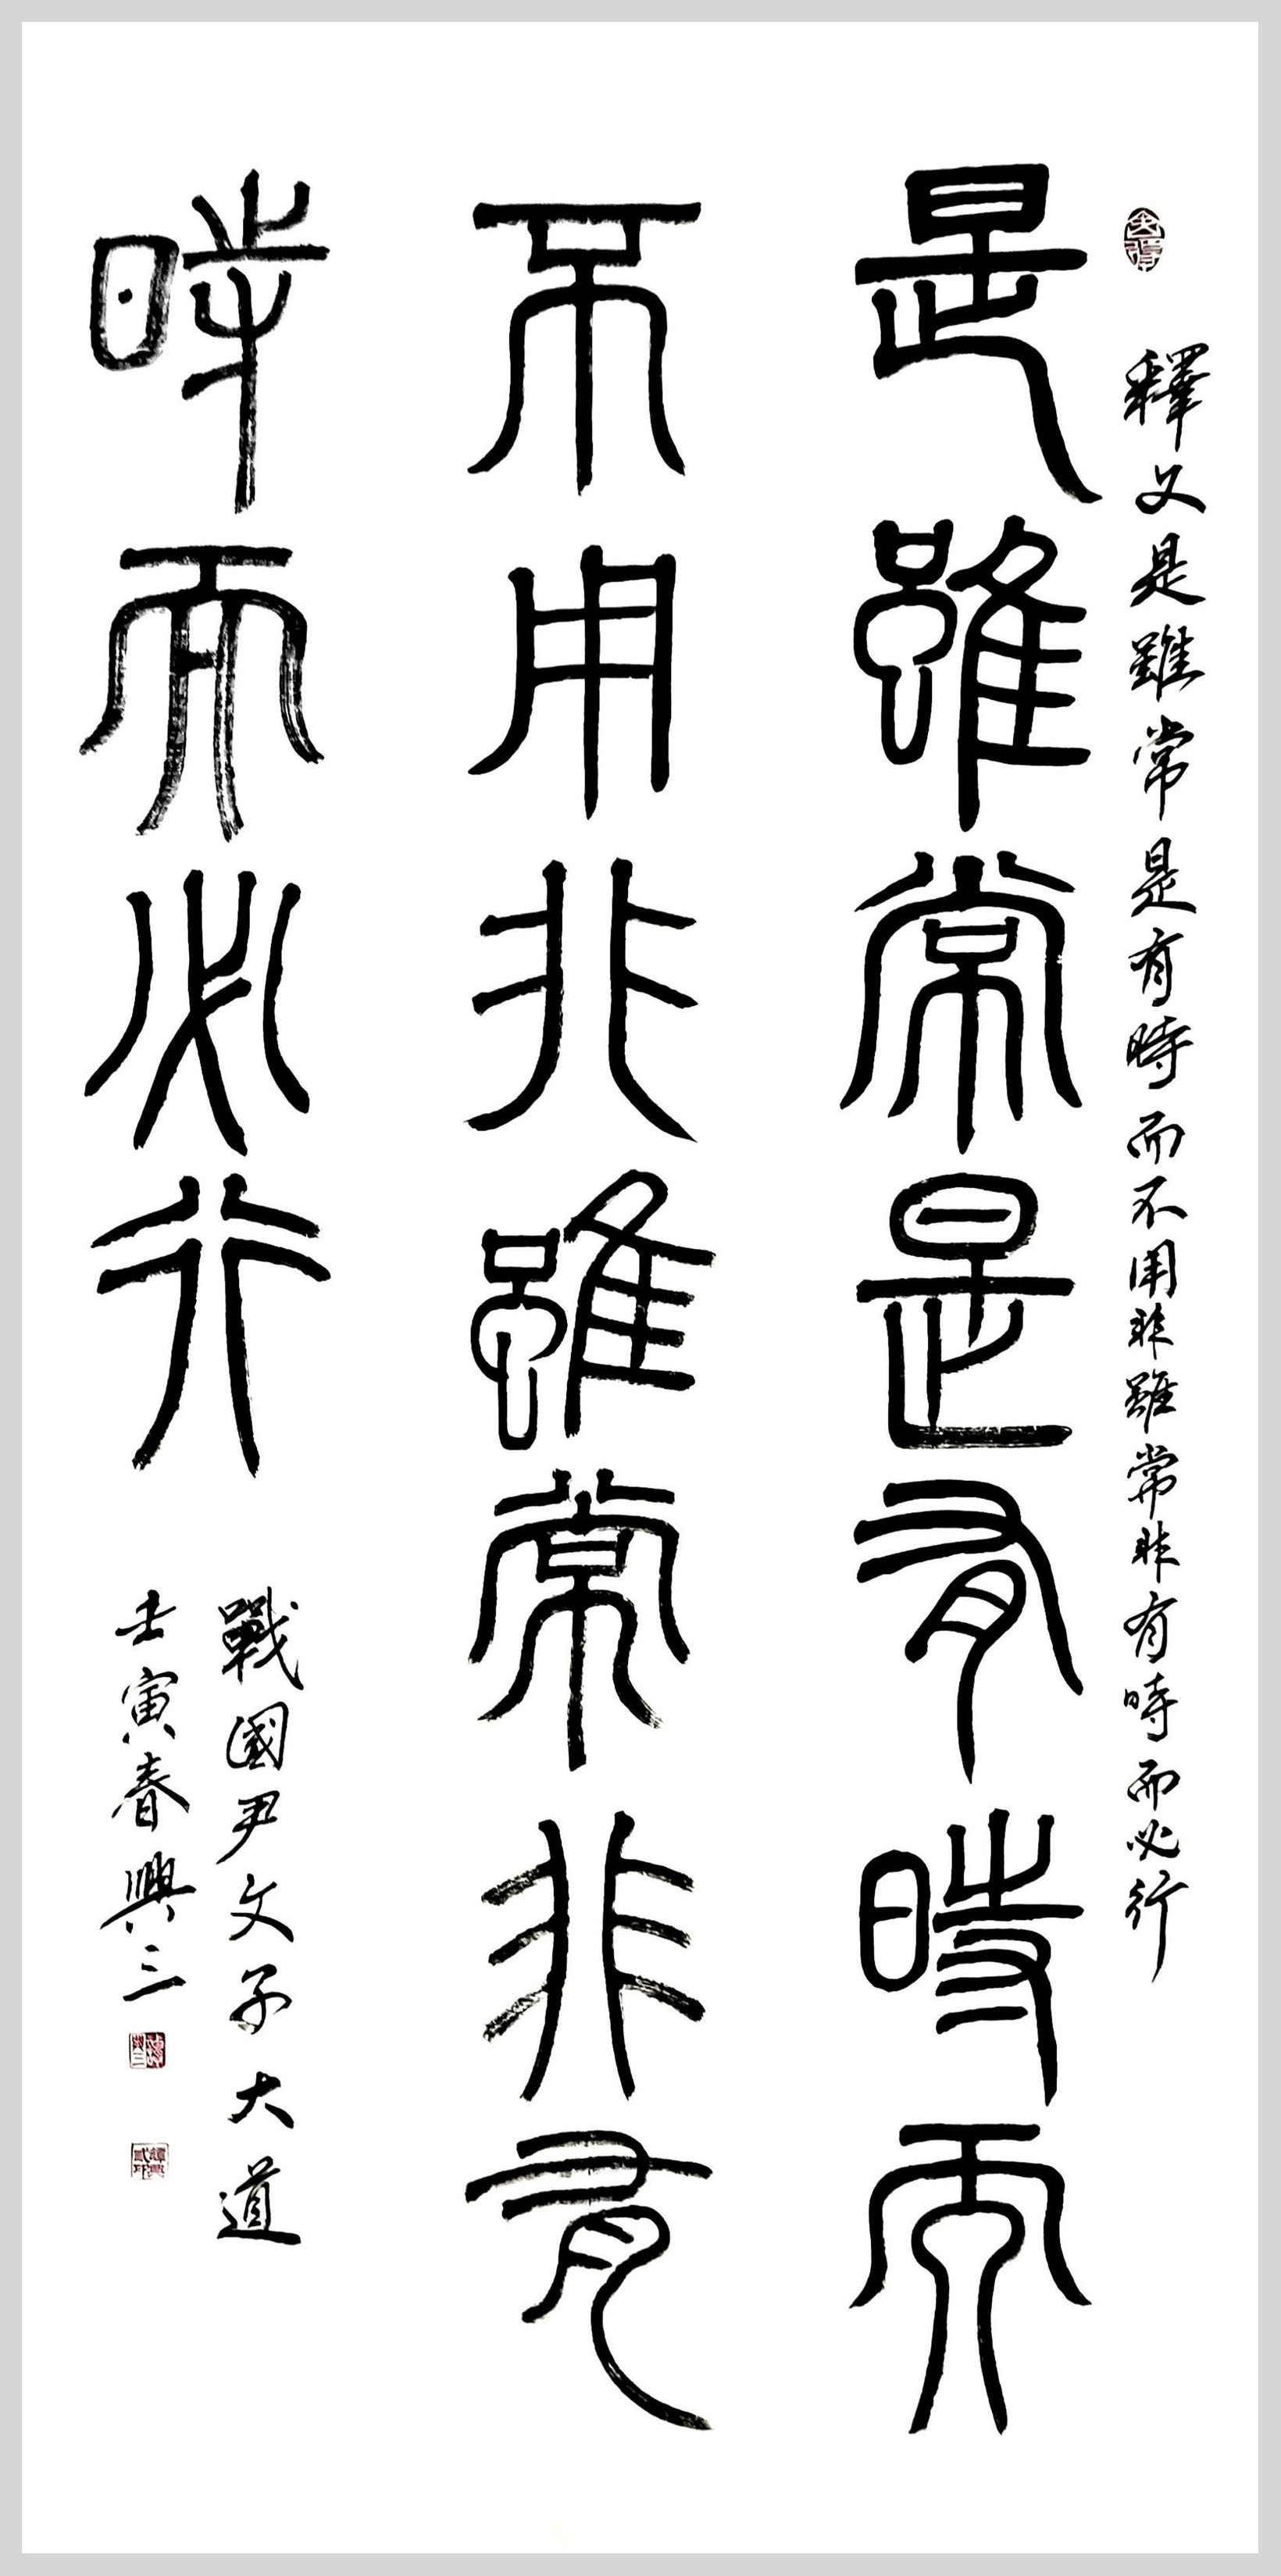 釋文是雖常是有時而不用非雖常非有時而必行
是雖常是有時而
不用非雖常非有
時而必行
戰國尹文子大道
壬寅春興三